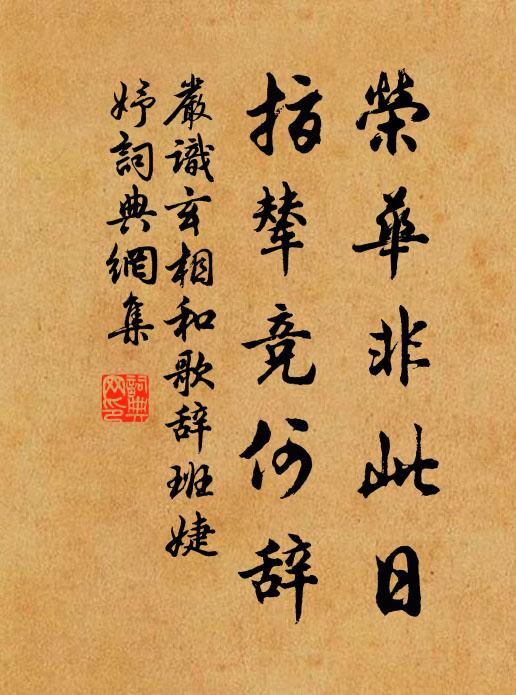 榮華非此日
指輦競何辞
嚴識玄相和歌辞班婕
妤詞典網集
詞典
网印